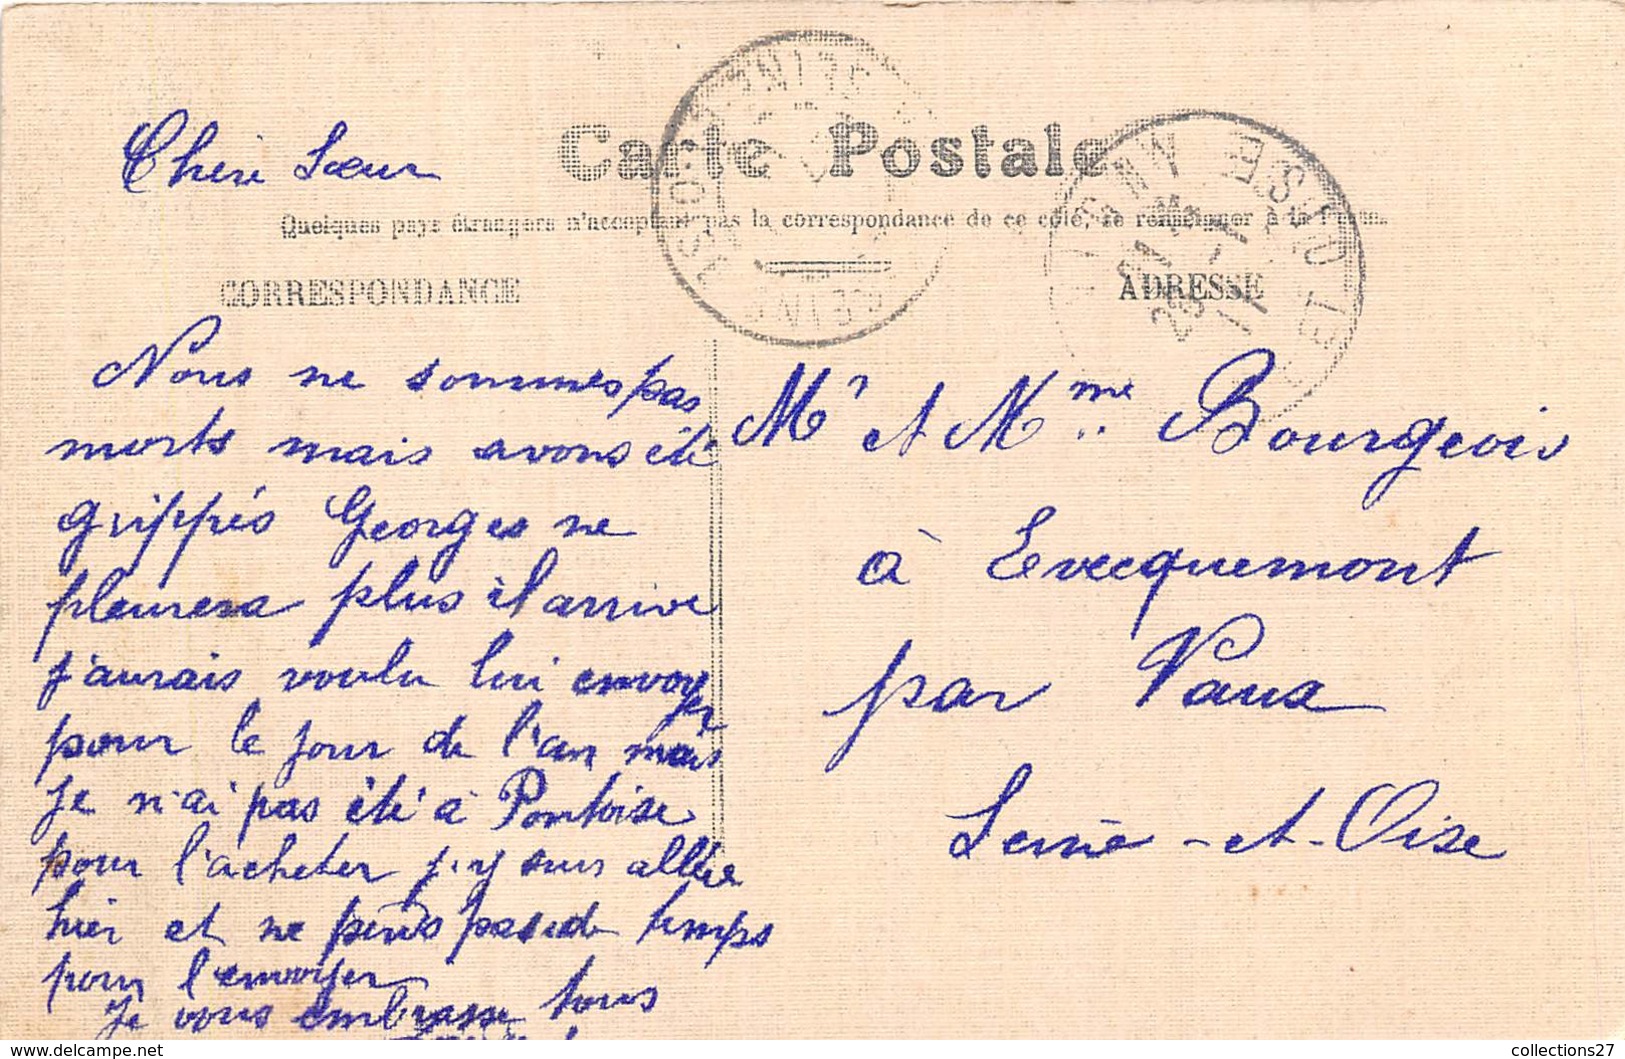 Carte Postale
Quelques pays étrangers n'acceptant pas la correspondance de ce côté, se renseigner à la Poste.
CORRESPONDANCE
Chère Sœur
Nous ne sommes pas
morts mais avons été
grippés Georges ne
pleurera plus il arrive
j'aurais voulu lui envoyer
pour le jour de l'an mais
je n'ai pas été à Pontoise
pour l'acheter j'y suis allée
hier et ne perds pas de temps
pour l'envoyer
Je vous embrasse tous
ADRESSE
Mr et Mme Bourgeois
à Evecquemont
par Vaux
Seine-et-Oise
SEINE-ET-OISE
collections27